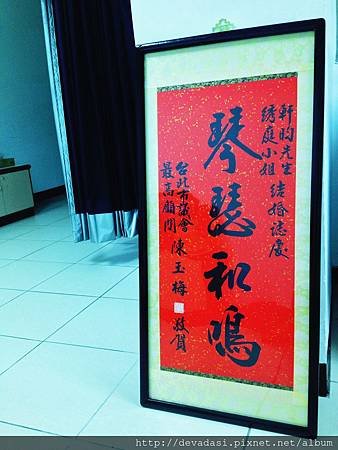 軒昀先生
綉庭小姐 結婚誌慶
琴瑟和鳴
台北市議會
最高顧問 陳玉梅 敬賀
http://devadasi.pixnet.net/album